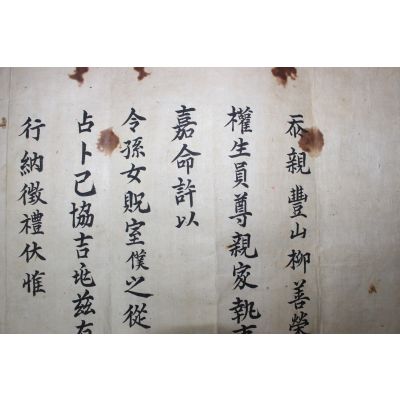 忝親豊山柳善榮
權生員尊親家執
嘉命許以
令孫女貺室僕之從
占卜已協吉兆玆
行納徵禮伏惟